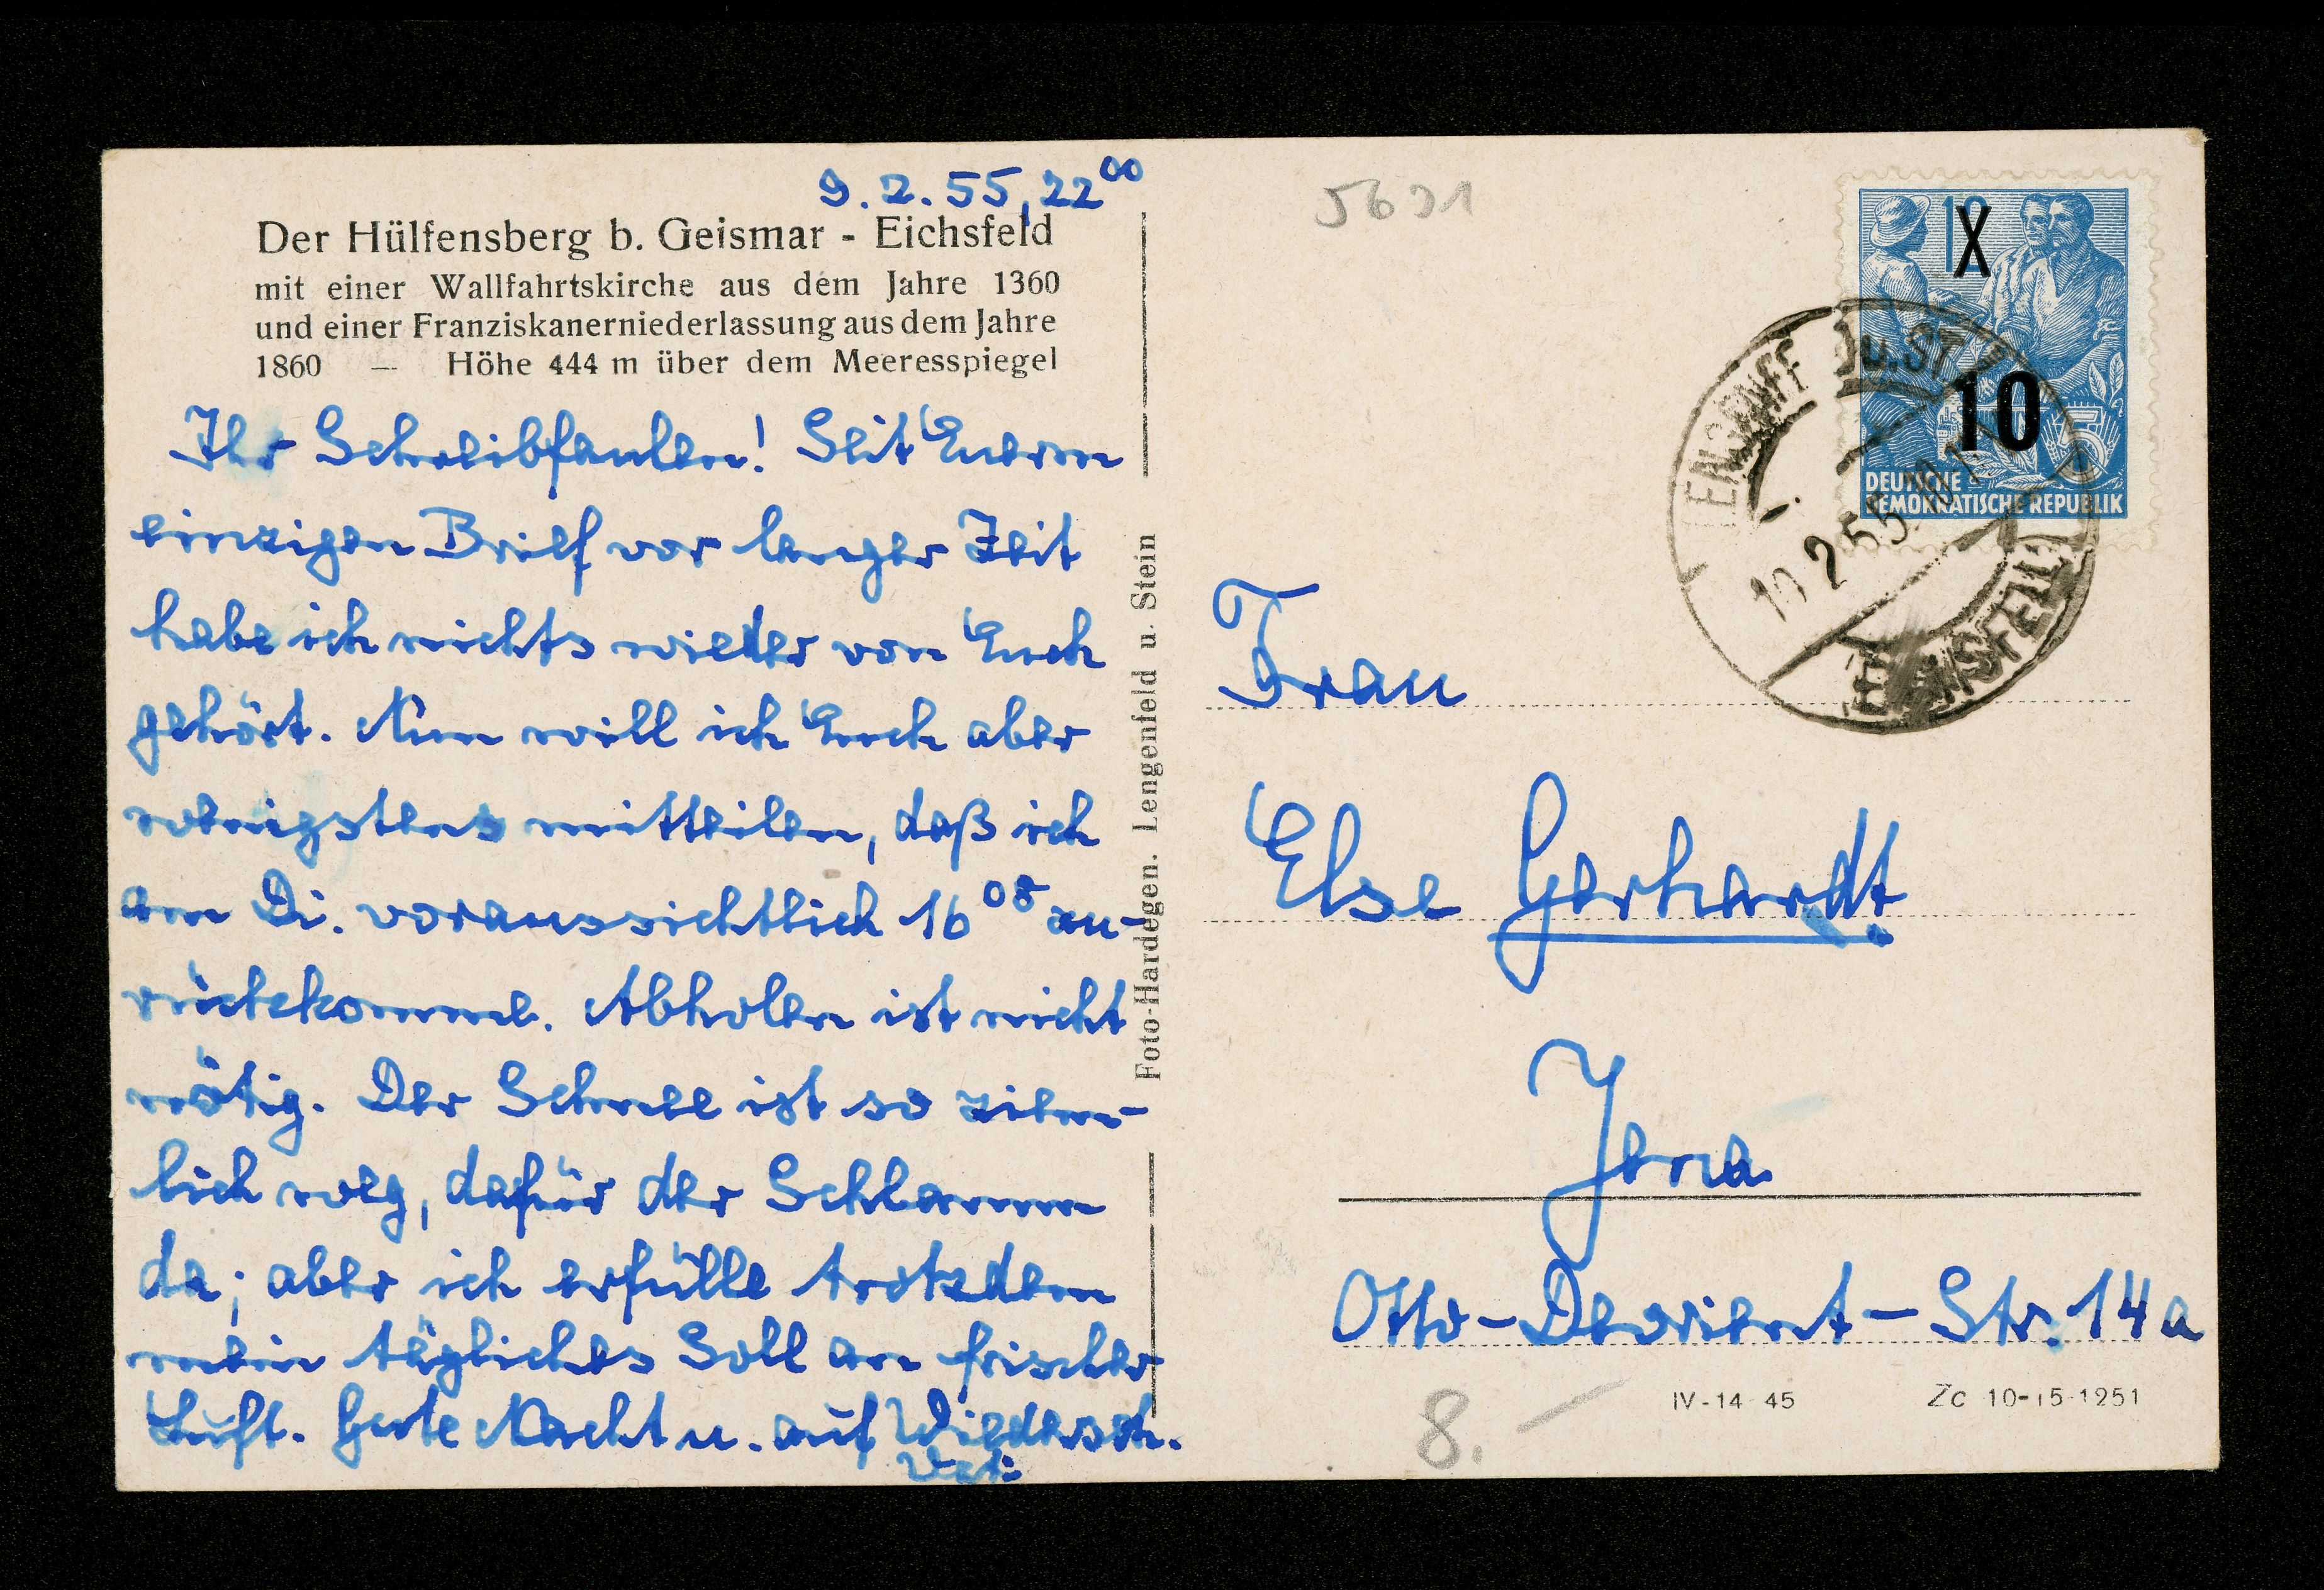 9.2.55, 22⁰⁰
Der Hülfensberg b. Geismar - Eichsfeld
mit einer Wallfahrtskirche aus dem Jahre 1360
und einer Franziskanerniederlassung aus dem Jahre
1860 — Höhe 444 m über dem Meeresspiegel
Ihr Schreibfaulen! Seit Euerm
einzigen Brief vor langer Zeit
habe ich nichts wieder von Euch
gehört. Nun will ich Euch aber
wenigstens mitteilen, daß ich
am Di. voraussichtlich 16⁰⁸ zu-
rückkomme. Abholen ist nicht
nötig. Der Schnee ist so ziem-
lich weg, dafür der Schlamm
da; aber ich erfülle trotzdem
mein tägliches Soll an frischer
Luft. Gute Nacht u. auf Wiederseh.
Foto-Hardegen. Lengenfeld u. Stein
5631
X
10
DEUTSCHE
DEMOKRATISCHE REPUBLIK
u. ST
10 2 55
EICHSFELD
Frau
Else Gerhardt
Jena
Otto-Devrient-Str. 14a
8.—
IV-14-45 Zc 10-15-1251